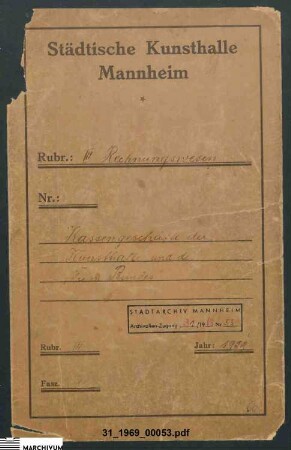 Städtische Kunsthalle
Mannheim
*
Rubr.: IV Rechnungswesen
Nr.:
Kassengeschäfte der
Kunsthalle und des
Freien Bundes
STADTARCHIV MANNHEIM
Archivalien-Zugang 31 /1969 Nr. 53
Rubr. IV Jahr: 1921
Fasc.
31_1969_00053.pdf
MARCHIVUM